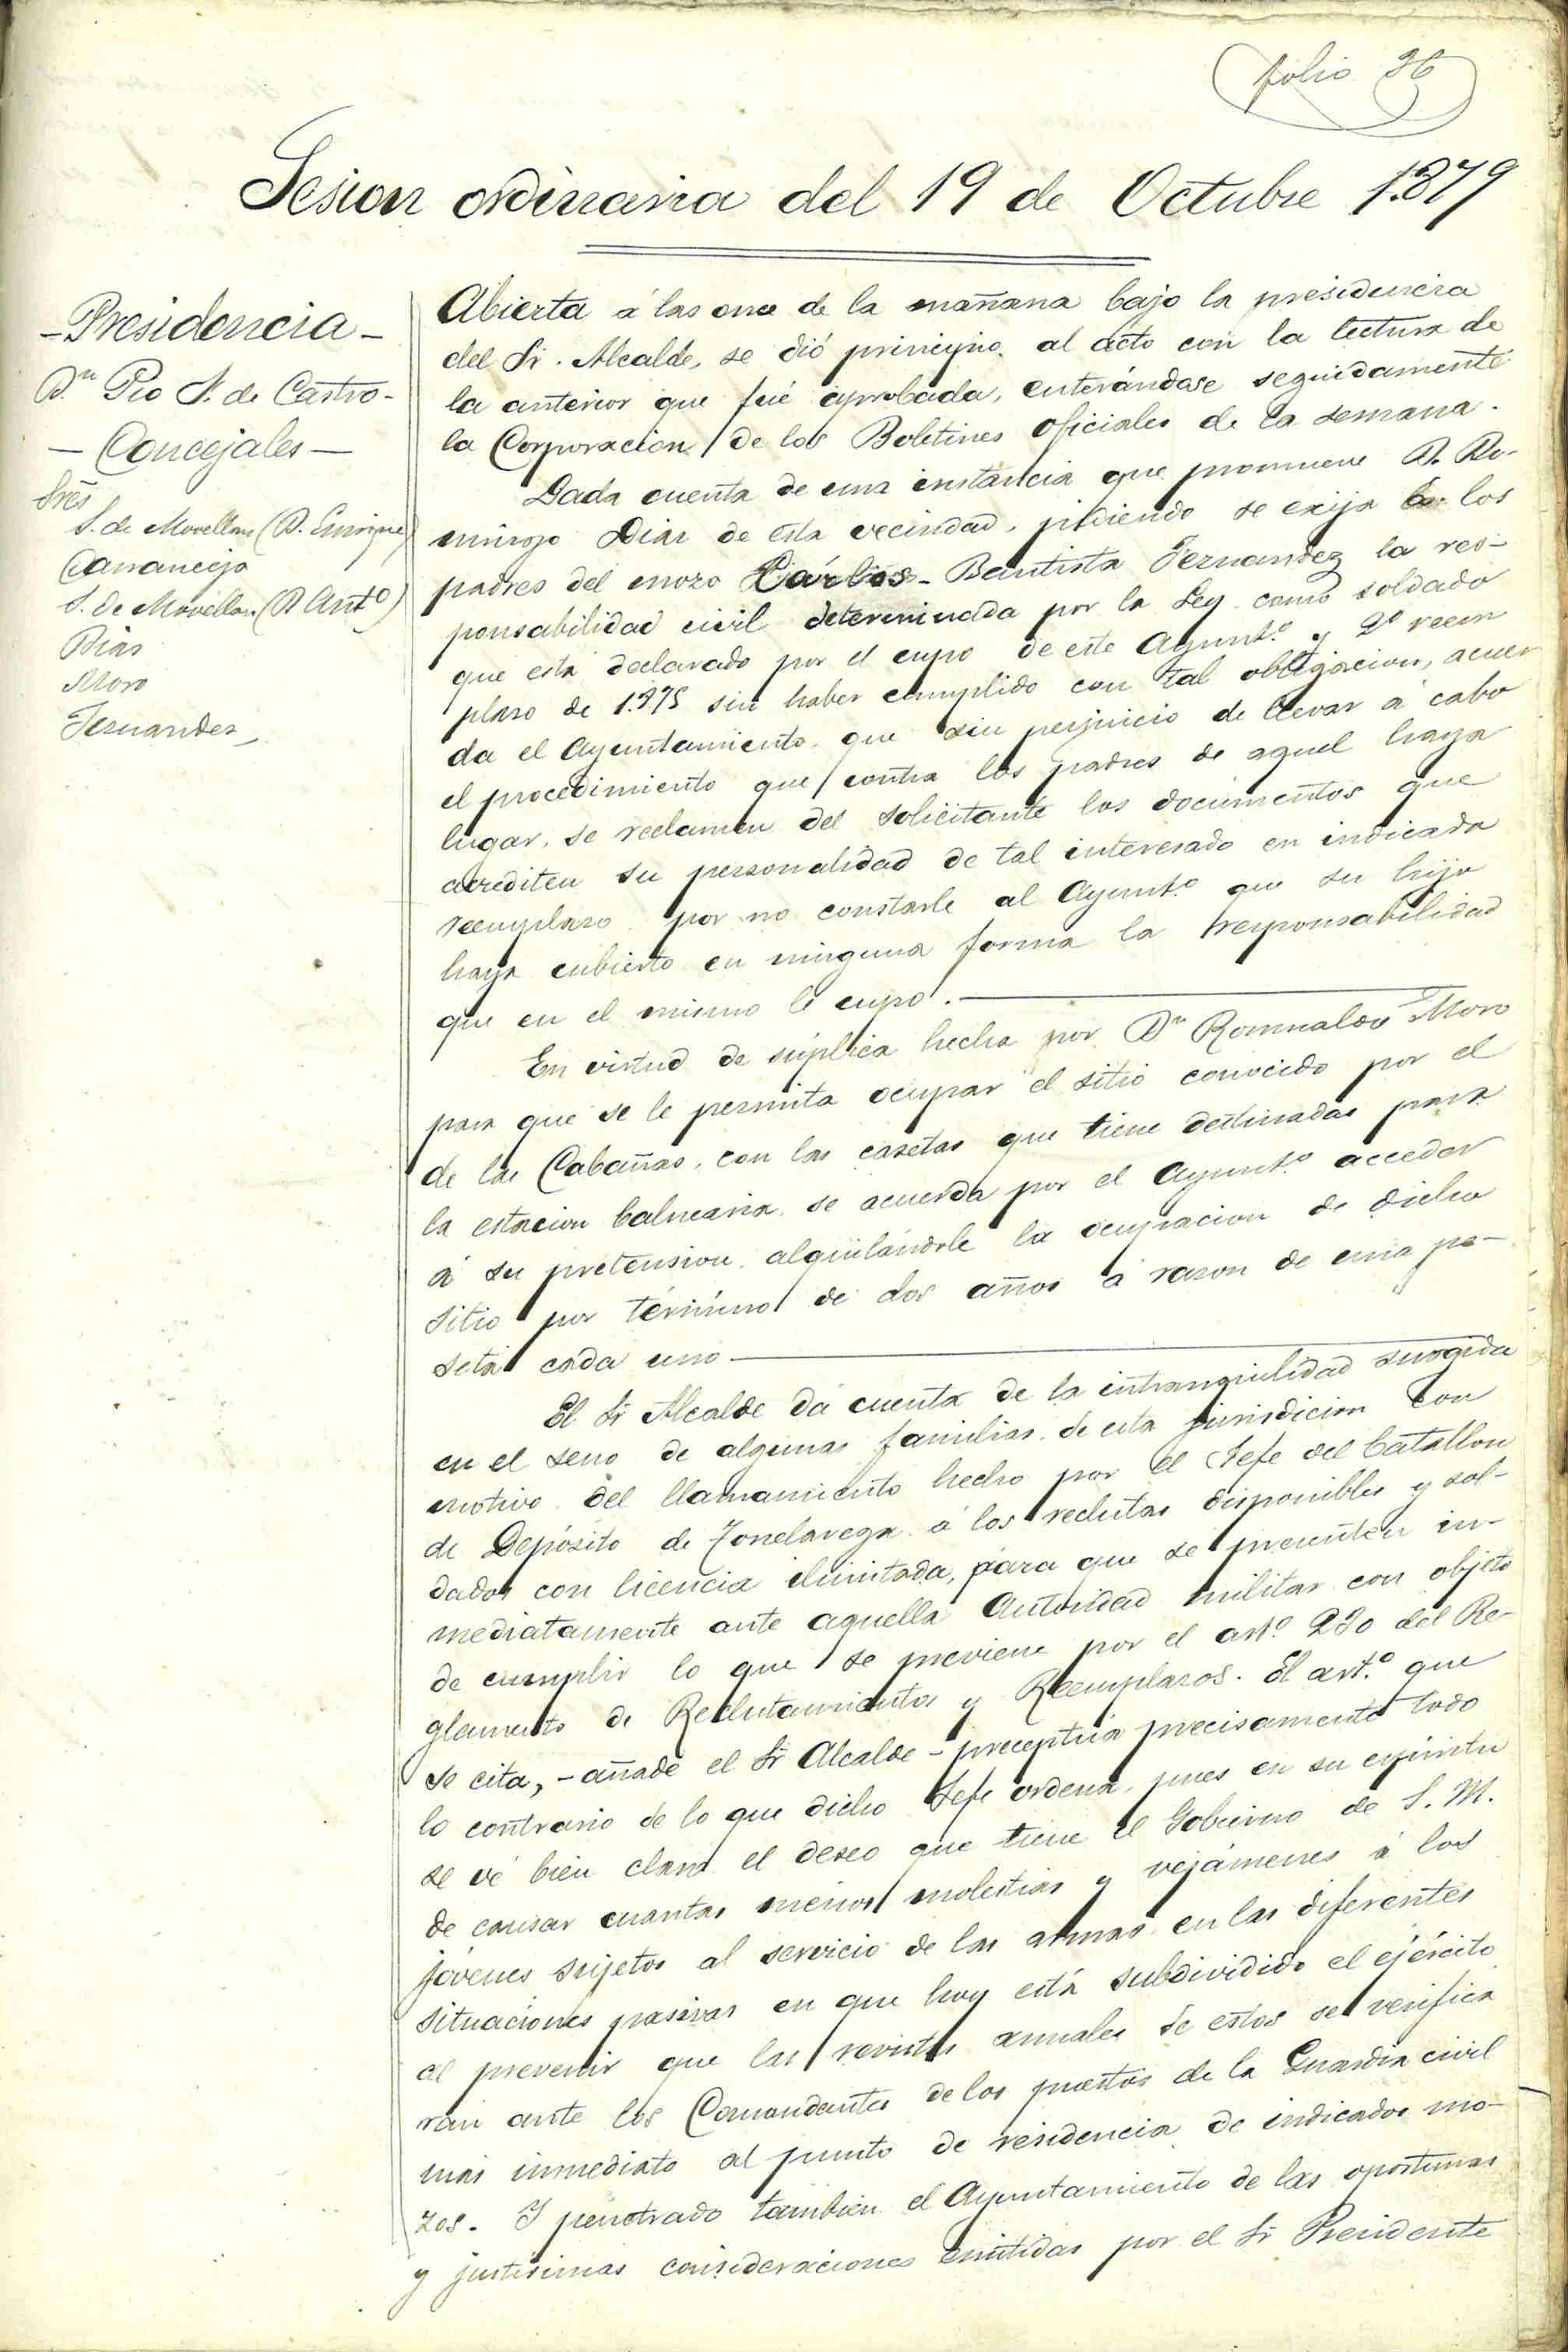 folio 26
Sesion ordinaria del 19 de Octubre 1.879
-Presidencia-
Dn Pio S. de Castro-
-Concejales-
Sres
S. de Movellan (D. Enrique)
Carranceja
S. de Movellan (D Anto)
Dias
Moro
Fernandez
Abierta á las once de la mañana bajo la presidencia
del Sr. Alcalde, se dió principio al acto con la lectura de
la anterior que fué aprobada, enterándose seguidamente
la Corporacion de los Boletines oficiales de la semana.
Dada cuenta de una instancia que promueve D. Do-
mingo Dias de esta vecindad, pidiendo se exija á los
padres del mozo Cárlos-Bautista Fernandez la res-
ponsabilidad civil determinada por la Ley como soldado
que está declarado por el cupo de este Ayunto y 2º reem
plazo de 1.875 sin haber cumplido con tal obligacion, acuer
da el Ayuntamiento, que sin perjuicio de llevar á cabo
el procedimiento que contra los padres de aquel haya
lugar, se reclamen del solicitante los documentos que
acrediten su personalidad de tal interesado en indicado
reemplazo por no constarle al Ayunto que su hijo
haya cubierto en ninguna forma la responsabilidad
que en el mismo le cupo.
En virtud de súplica hecha por Dn Romualdo Moro
para que se le permita ocupar el sitio conocido por el
de las Cabañas, con las casetas que tiene destinadas para
la estacion balnearia, se acuerda por el Ayunto acceder
á su pretension alquilándole la ocupacion de dicho
sitio por término de dos años á razon de una pe-
seta cada uno
El Sr Alcalde dá cuenta de la intranquilidad surgida
en el seno de algunas familias de esta jurisdicion con
motivo del llamamiento hecho por el Jefe del batallon
de Depósito de Torrelavega á los reclutas disponibles y sol-
dados con licencia ilimitada, para que se presenten in-
mediatamente ante aquella Autoridad militar con objeto
de cumplir lo que se previene por el arto 230 del Re-
glamento de Reclutamientos y Reemplazos. El art.o que
se cita, -añade el Sr Alcalde- preceptúa precisamente todo
lo contrario de lo que dicho Jefe ordena, pues en su espiritu
se vé bien claro el deseo que tiene el Gobierno de S. M.
de causar cuantas menos molestias y vejámenes á los
jóvenes sujetos al servicio de las armas en las diferentes
situaciones pasivas en que hoy está subdividido el ejército
al prevenir que las revistas anuales de estos se verifica
rán ante los Comandantes de los puestos de la Guardia civil
mas inmediato al punto de residencia de indicados mo-
zos. Y penetrado tambien el Ayuntamiento de las oportunas
y justisimas consideraciones emitidas por el Sr Presidente